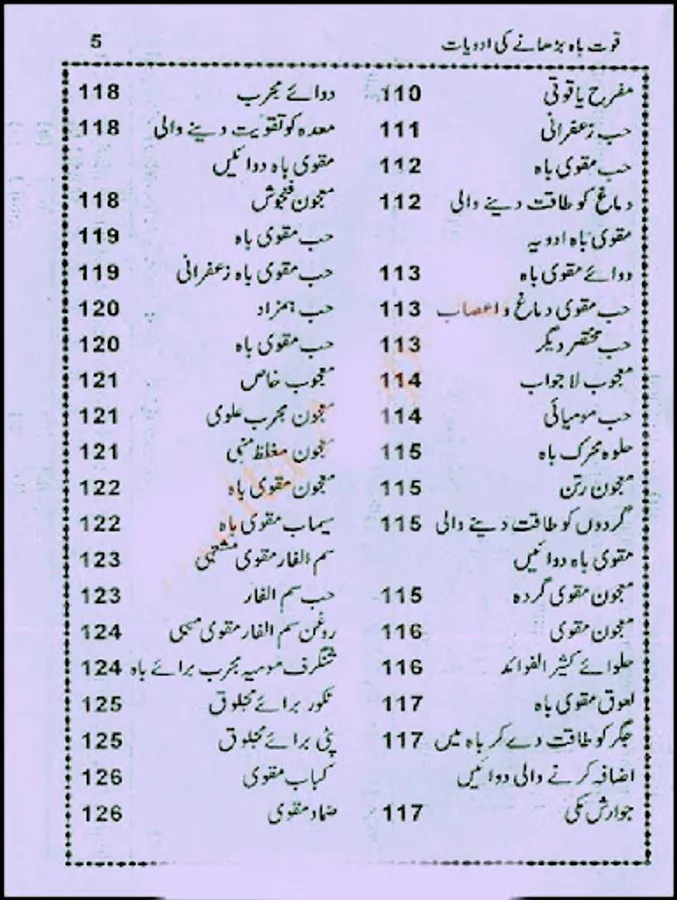 قوت باہ بڑھانے کی ادویات 5
مفرح یاقوتی 110
حب زعفرانی 111
حب مقوی باہ 112
دماغ کو طاقت دینے والی 112
مقوی باہ ادویہ
دوائے مقوی باہ 113
حب مقوی دماغ و اعصاب 113
حب مختصر دیگر 113
معجوب لاجواب 114
حب مومیائی 114
حلوہ محرک باہ 115
معجون رتن 115
گردوں کو طاقت دینے والی 115
مقوی باہ دوائیں
معجون مقوی گردہ 115
معجون مقوی 116
حلوائے کثیر الفوائد 116
لعوق مقوی باہ 117
جگر کو طاقت دے کر باہ میں 117
اضافہ کرنے والی دوائیں
جوارش مکی 117
دوائے مجرب 118
معدہ کو تقویت دینے والی 118
مقوی باہ دوائیں
معجون فنجوش 118
حب مقوی باہ 119
حب مقوی باہ زعفرانی 119
حب ہمزاد 120
حب مقوی باہ 120
معجوب خاص 121
معجون مجرب علوی 121
معجون مغلظ منی 121
معجون مقوی باہ 122
سیماب مقوی باہ 122
سم الفار مقوی مشتہی 123
حب سم الفار 123
روغن سم الفار مقوی 124
شنگرف مومیہ مجرب برائے باہ 124
ٹکور برائے مجلوق 125
پٹی برائے مجلوق 125
کباب مقوی 126
ضماد مقوی 126